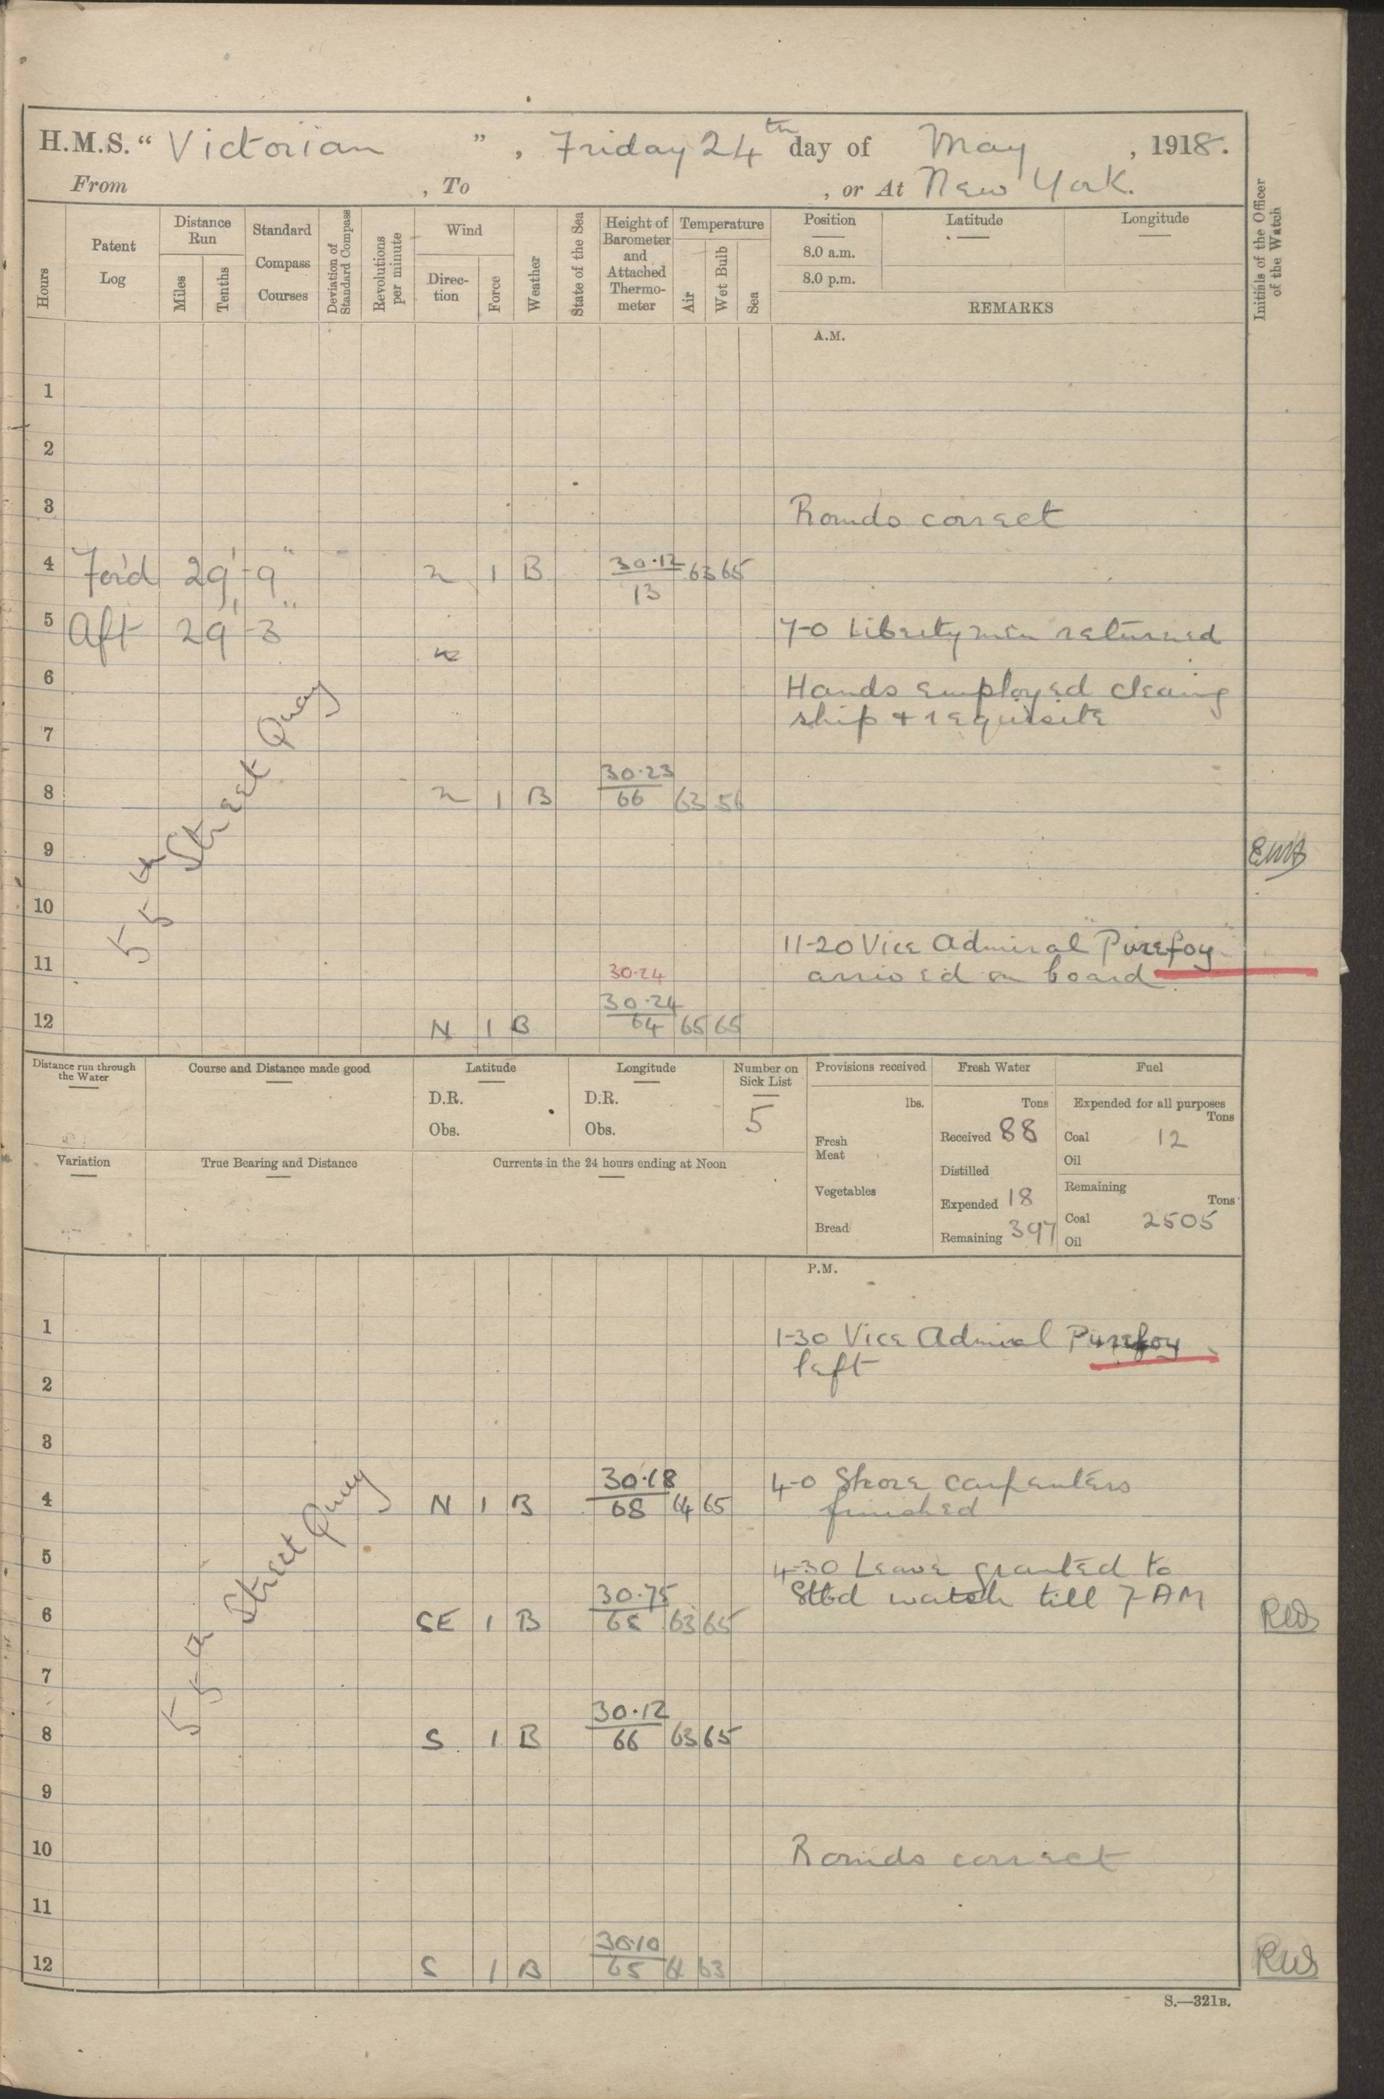 H.M.S. “ Victorian ”, Friday 24th day of May, 1918.
From , To , or At New York.
Hours
Patent Log
Distance Run
Miles
Tenths
Standard Compass Courses
Deviation of Standard Compass
Revolutions per minute
Wind
Direction
Force
Weather
State of the Sea
Height of Barometer and Attached Thermometer
Temperature
Air
Wet Bulb
Sea
Position Latitude Longitude
8.0 a.m.
8.0 p.m.
REMARKS
Initials of the Officer of the Watch
A.M.
1
2
3 Rounds correct
4 For'd 29'-9" N 1 B 30.12 13 63 65
5 Aft 29'-3" 7-0 Liberty men returned
6 Hands employed cleaing
ship + requisite
7
8 N 1 B 30.23 66 63 56
55th Street Quay
9
10
11-20 Vice Admiral "Purefoy"
11 30.24 arrived on board.
12 N 1 B 30.24 64 65 65
Distance run through the Water
Course and Distance made good
Latitude
D.R.
Obs.
Longitude
D.R.
Obs.
Number on Sick List
5
Variation
True Bearing and Distance
Currents in the 24 hours ending at Noon
Provisions received
lbs.
Fresh Meat
Vegetables
Bread
Fresh Water
Tons
Received 88
Distilled
Expended 18
Remaining 397
Fuel
Expended for all purposes
Tons
Coal 12
Oil
Remaining
Tons
Coal 2505
Oil
P.M.
1 1-30 Vice Admiral Purefoy
left
2
3
4 N 1 B 30.18 68 64 65 4-0 Shore carpenters
finished
5 4-30 Leave granted to
Stbd watch till 7-AM
6 SE 1 B 30.75 65 63 65
7
55th Street Quay
8 S 1 B 30.12 66 63 65
9
10 Rounds correct
11
12 S 1 B 30.10 65 61 63
S.—321B.